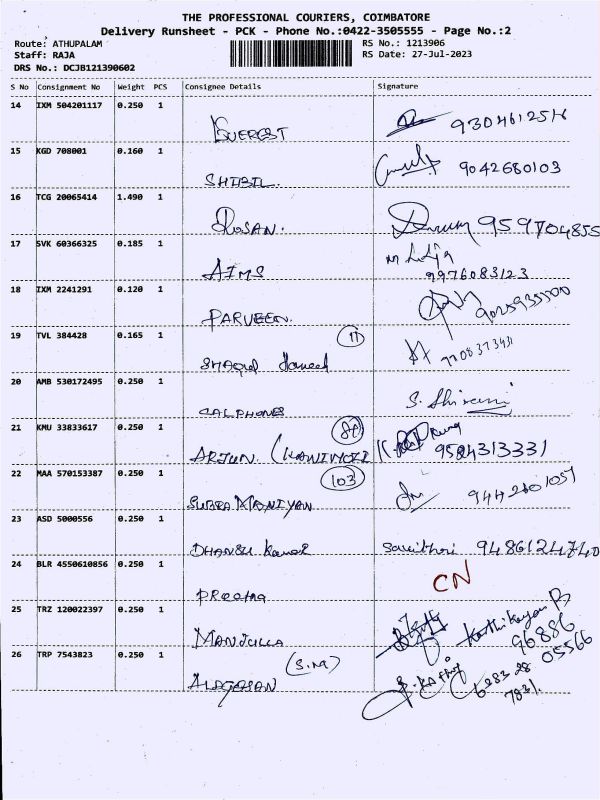 THE PROFESSIONAL COURIERS, COIMBATORE
Delivery Runsheet - PCK - Phone No.:0422-3505555 - Page No.:2
Route: ATHUPALAM RS No.: 1213906
Staff: RAJA RS Date: 27-Jul-2023
DRS No.: DCJB121390602
S No Consignment No Weight PCS Consignee Details Signature
14 IXM 504201117 0.250 1
EVEREST
15 KGD 708001 0.160 1 9042680103
SHIBIL.
16 TCG 20065414 1.490 1
ROSAN. 959704855
17 SVK 60366325 0.185 1
AIMS 9976083123
18 IXM 2241291 0.120 1
PARVEEN.
19 TVL 384428 0.165 1 11
20 AMB 530172495 0.250 1 S. Shivani
CALPHONES
21 KMU 33833617 0.250 1
ARJUN 9524313331
22 MAA 570153387 0.250 1 103
SUBRAMANIYAN
23 ASD 5000556 0.250 1
DHANSU Kamal Savithri 9486124740
24 BLR 4550610856 0.250 1 CN
Preetha
25 TRZ 120022397 0.250 1 Karthikeyan B
MANJULLA 96886
05566
26 TRP 7543823 0.250 1
ALAGESAN 7831.